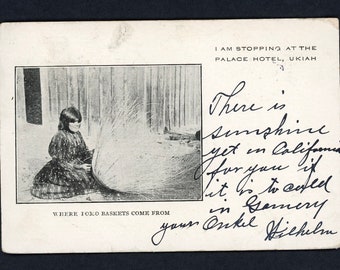 I AM STOPPING AT THE
PALACE HOTEL, UKIAH
There is
sunshine
yet in California
for you if
it is to cold
in Germery
your Onkel
Wilhelm
WHERE POMO BASKETS COME FROM